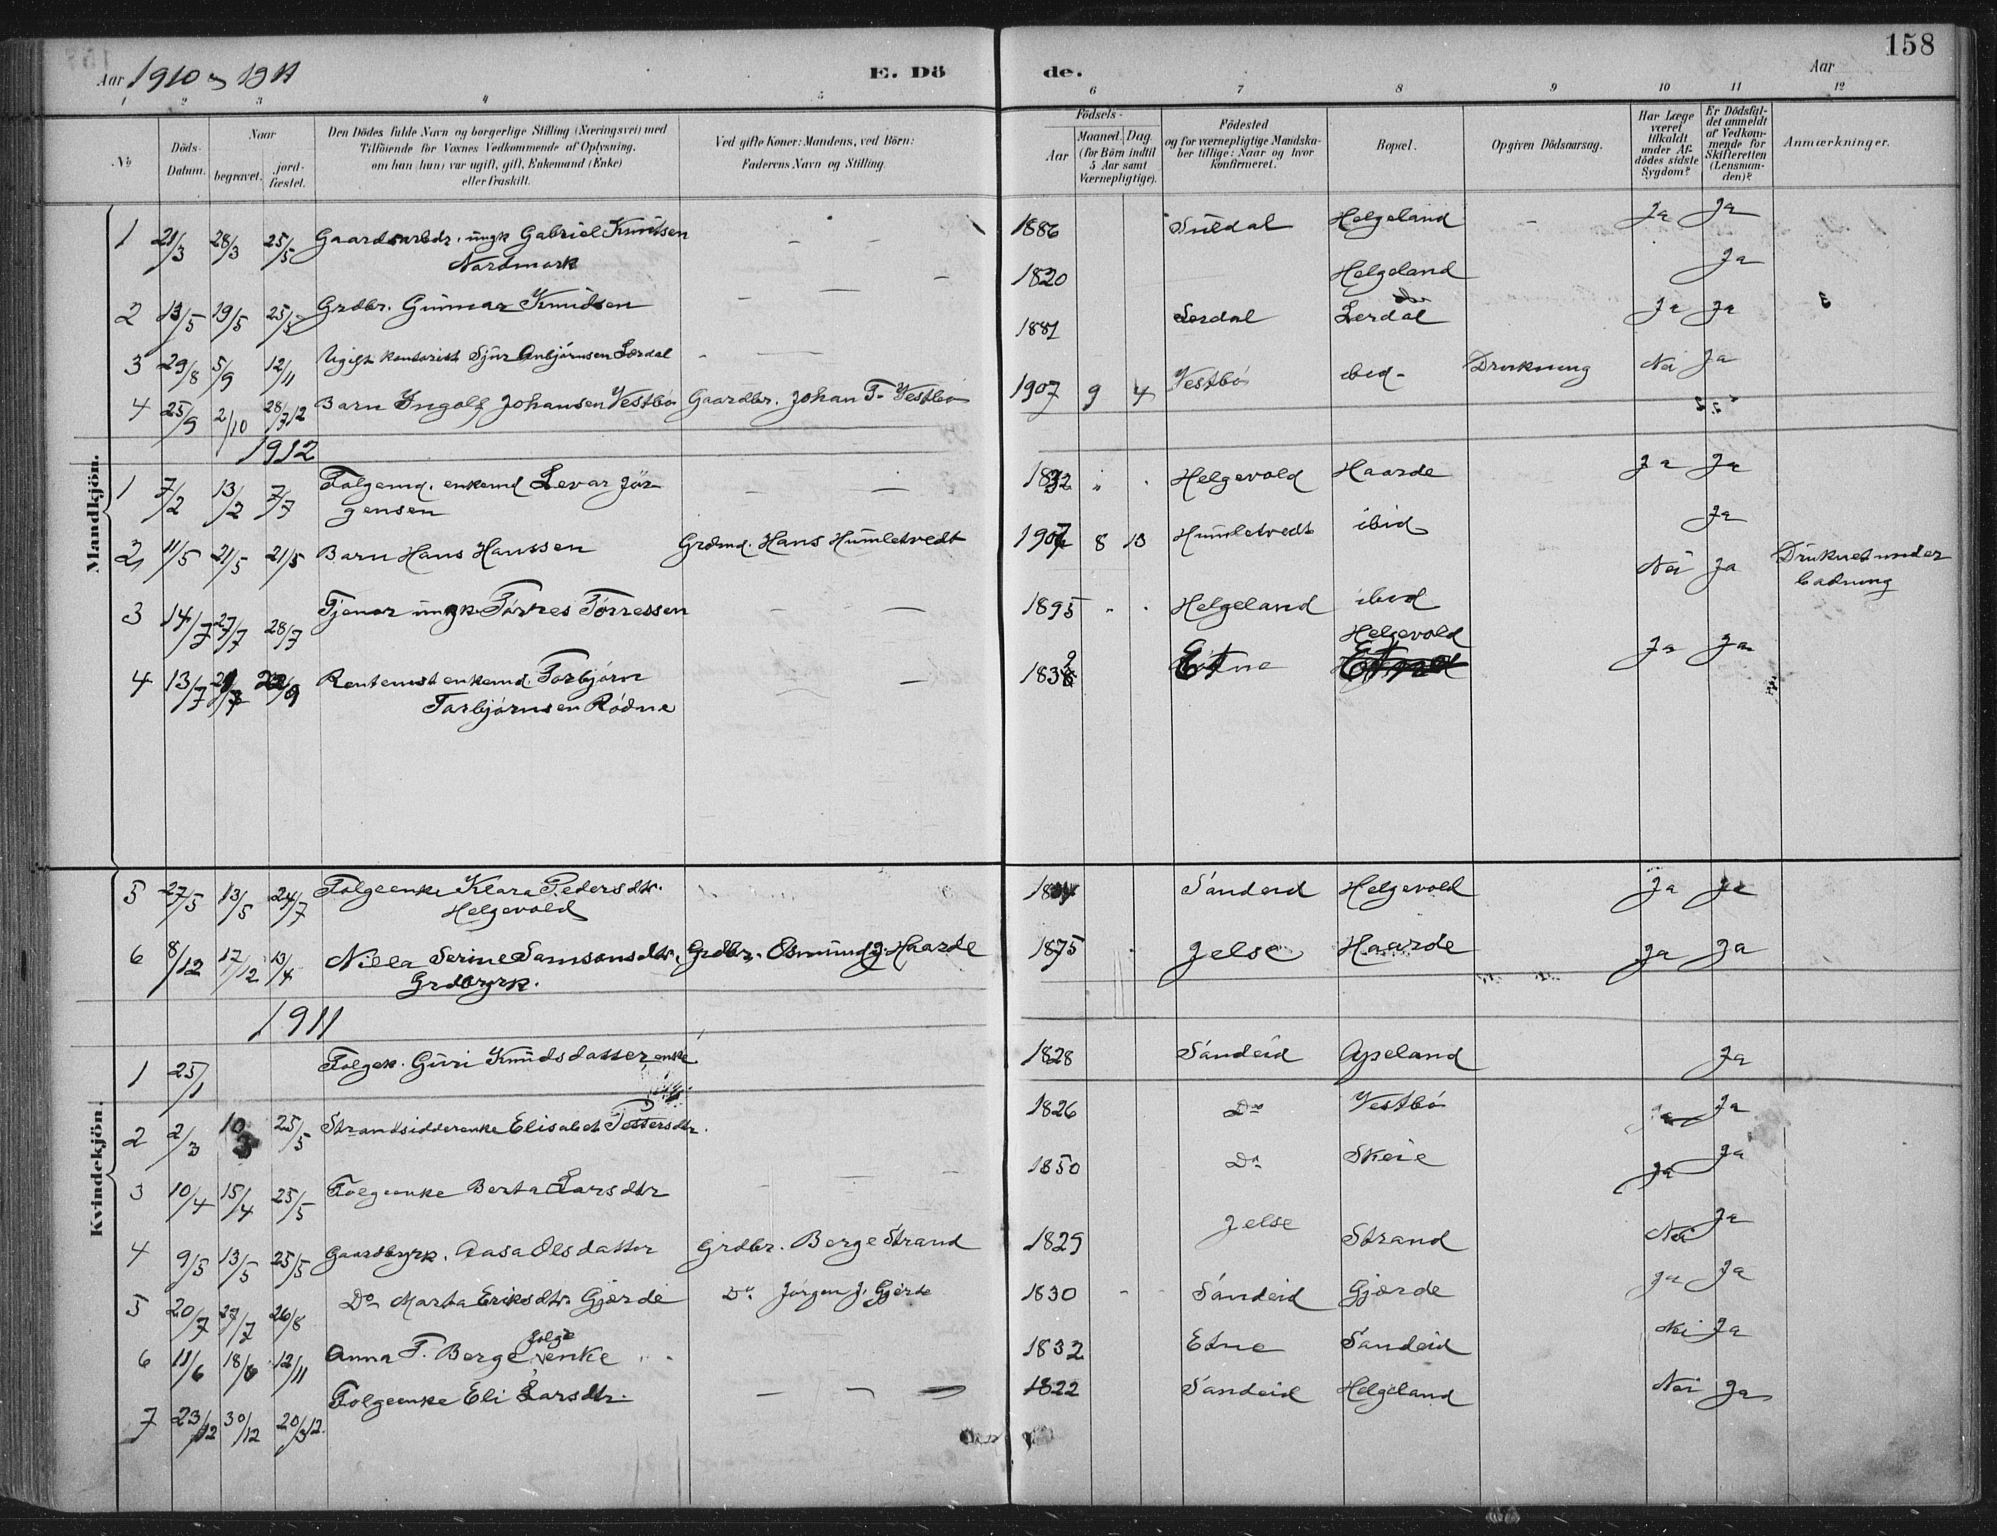 158
Aar 1910 og 1911 E. Dö de. Aar
1 2 3 4 5 6 7 8 9 10 11 12
No Döds-Datum. Naar begravet. jord-fæstet. Den Dödes fulde Navn og borgerlige Stilling (Næringsvei) med Tilföiende for Voxnes Vedkommende af Oplysning, om han (hun) var ugift, gift, Enkemand (Enke) eller fraskilt. Ved gifte Koner: Mandens, ved Börn: Faderens Navn og Stilling. Födsels- Aar Maaned. Dag. (for Börn indtil 5 Aar samt Værnepligtige). Födested og for værnepligtige Mandskaber tillige: Naar og hvor konfirmeret. Bopæl. Opgiven Dödsaarsag. Har Læge været tilkaldt under Afdödes sidste Sygdom? Er Dödsfaldet anmeldt af Vedkommende for Skifteretten (Lensmanden)? Anmærkninger.
Mandkjön.
1 21/3 28/3 25/5 Gaardsarbdr. ungk Gabriel Knutsen — — 1886 Suldal Helgeland - Ja Ja
Nordmork
2 13/5 19/5 25/5 Grdbr. Gunnar Knudsen — — — 1820 Helgeland Ja
3 29/8 5/9 12/11 Ugift kontorist Sjur Anbjörnsen Lerdal - — 1881 Lerdal Lerdal Ja Ja
4 25/9 2/10 28/7 12 Barn Ingolf Johansen Vestbö Gaardbr. Johan T. Vestbö 1907 9 4 Vestbö ibid- Drukning Nei Ja
1912
1 7/2 13/2 7/7 Folgemd. enkemd Levar Jör- — — 1832 " . Helgevold Haarde Ja Ja
gensen
2 11/5 21/5 21/5 Barn Hans Hanssen Grdmd. Hans Humletvedt 1907 8 13 Humletvedt ibid Ja
3 14/7 27/7 28/7 Tjener ungk Törres Törressen - — 1895 " . Helgeland ibid Nei Ja Druknet under
badning
4 13/7 Rentenist enkemd Torbjörn — 1839 Etne Helgevold Ja Ja
Torbjörnsen Rödne
Kvindekjön.
5 27/5 13/5 24/7 Folgeenke Klara Pedersdtr. Sandeid Helgevold Ja Ja
Helgevold
6 8/12 17/12 13/4 Nilla Serine Samsonsdtr. Grdbr. Osmund J. Haarde 1875 Jelse Haarde Ja Ja
Grdbrgrk.
1911
1 25/1 Folgek. Guri Knudsdatter, enke 1828 Sandeid Apeland Ja
2 2/3 10/3 25/5 Strandsidderenke Elisabet Pettersdtr. 1826 Do Vestbö Ja Ja
3 10/4 15/4 25/5 Folgeenke Berta Larsdtr — — 1850 Do Skeie Ja Ja
4 9/5 13/5 25/5 Gaardbrgrk. Aasa Olsdatter Grdbr. Berge Strand 1829 Jelse Strand Nei Ja
5 20/7 27/7 26/8 Do Marta Eriksdtr Gjerde Do Jörgen J. Gjerde 1830 - Sandeid Gjerde Ja Ja
6 11/6 18/6 12/11 Anna T. Berge folge enke 1832 Etne Sandeid Nei Ja
7 23/12 30/12 20/3 12. Folgeenke Eli Larsdtr. — — — 1822 Sandeid Helgeland Nei Ja